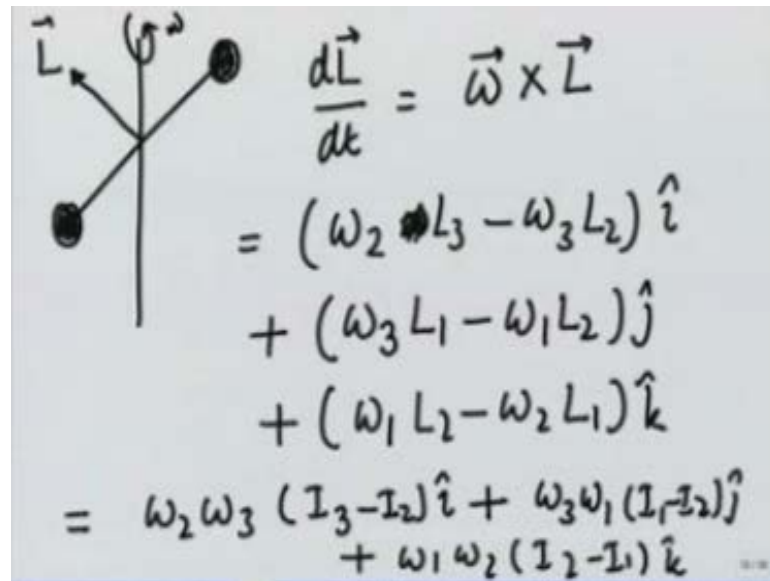 L⃗ ω
dL⃗/dt = ω⃗ × L⃗
= (ω₂ L₃ − ω₃ L₂) î
+ (ω₃ L₁ − ω₁ L₂) ĵ
+ (ω₁ L₂ − ω₂ L₁) k̂
= ω₂ ω₃ (I₃ − I₂) î + ω₃ ω₁ (I₁ − I₂) ĵ
+ ω₁ ω₂ (I₂ − I₁) k̂